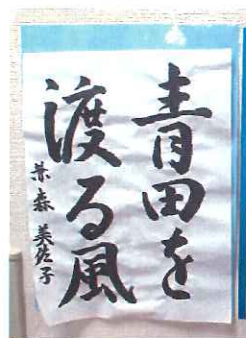 青田を
渡る風
森 美佐子